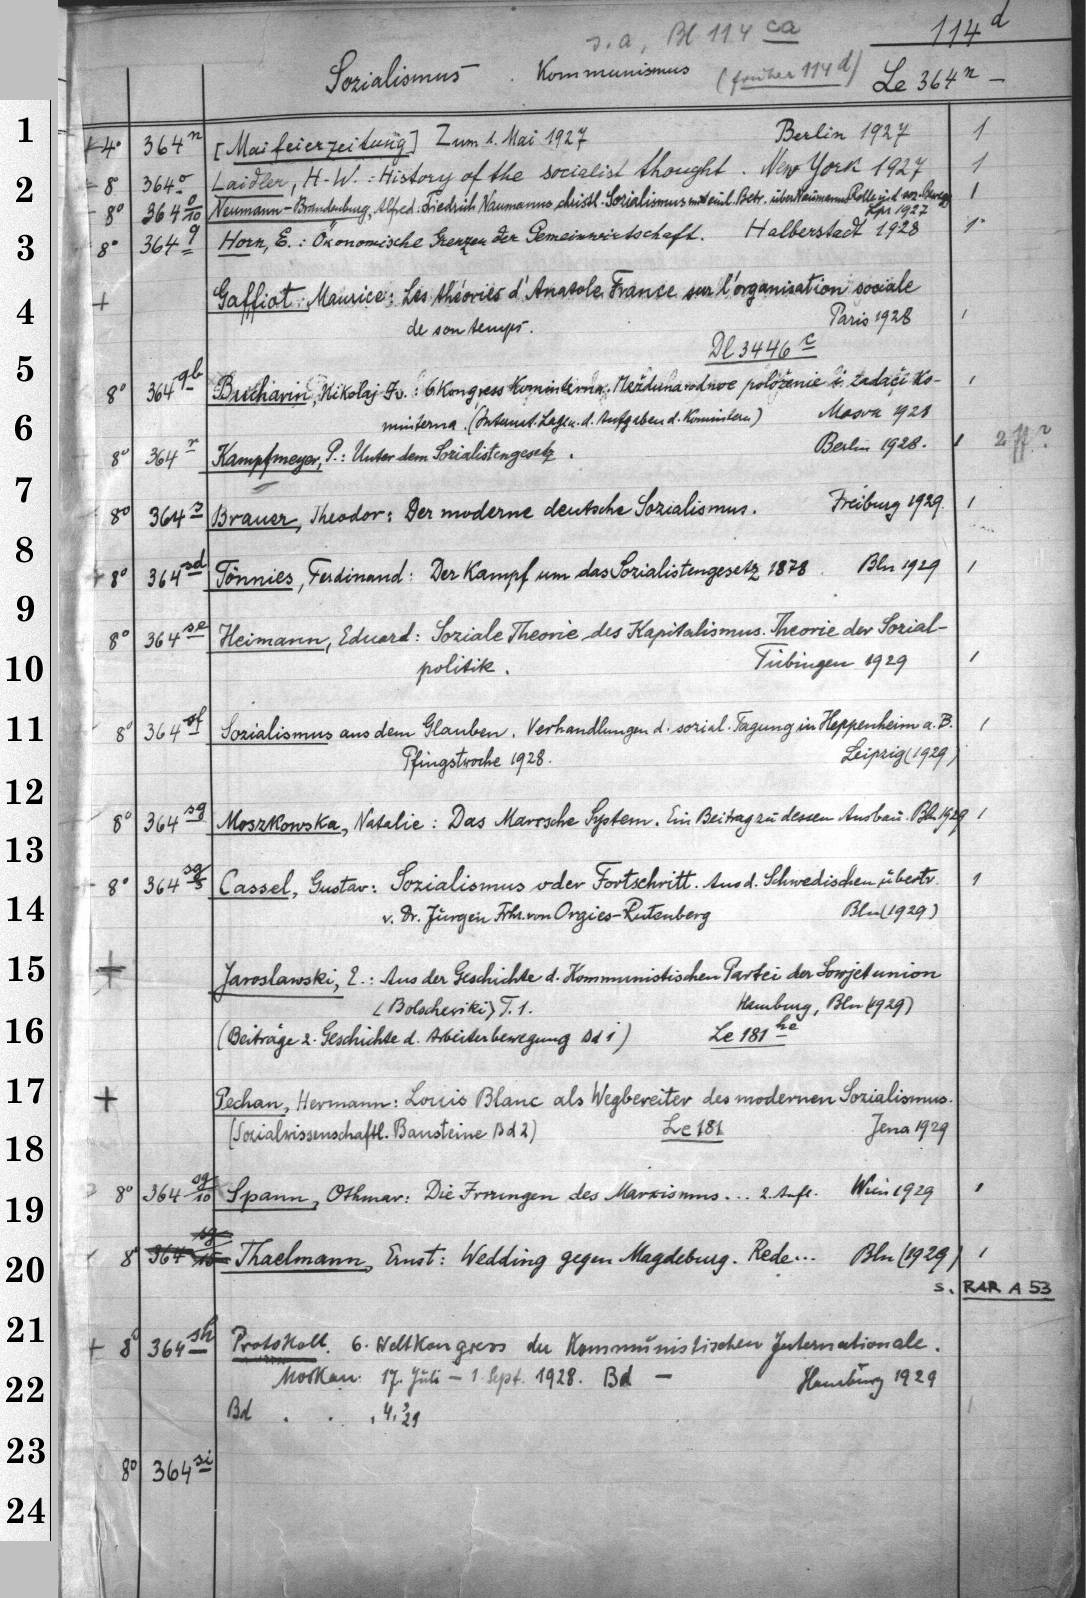 s. a. Bl 114 ca
114 d
Sozialismus . Kommunismus (früher 114 d) Le 364 n —
1 + 4° 364 n [Maifeierzeitung] Zum 1. Mai 1927 Berlin 1927 1
2 8° 364 o Laidler, H. W. : History of the socialist thought . New York 1927 1
8° 364 o/10 Neumann-Brandenburg, Alfred : Friedrich Naumanns christl. Sozialismus mit einl. Betr. über Naumanns Rolle i. d. soz. Bewgg
Lpz. 1927 1
3 8° 364 q Horn, E. : Ökonomische Grenzen der Gemeinwirtschaft. Halberstadt 1928 1
4 + Gaffiot, Maurice : Les théories d'Anatole France sur l'organisation sociale
de son temps. Paris 1928 1
5 Dl 3446 c
8° 364 qb Bucharin, Nikolaj Iv. : 6 Kongress Kominterna. Meždunarodnoe položenie i zadači Ko-
6 minterna. (Internat. Lage u. d. Aufgaben d. Komintern) Moskva 1928 1
8° 364 r Kampfmeyer, P. : Unter dem Sozialistengesetz . Berlin 1928. 1 2 ff ?
7
8° 364 s Brauer, Theodor : Der moderne deutsche Sozialismus. Freiburg 1929 1
8
+ 8° 364 sd Tönnies, Ferdinand : Der Kampf um das Sozialistengesetz 1878 . Bln 1929 1
9
8° 364 se Heimann, Eduard : Soziale Theorie des Kapitalismus. Theorie der Sozial-
10 politik . Tübingen 1929 1
11 8° 364 sf Sozialismus aus dem Glauben . Verhandlungen d. sozial. Tagung in Heppenheim a. B.
Pfingstwoche 1928. Leipzig (1929) 1
12
8° 364 sg Moszkowska, Natalie : Das Marxsche System. Ein Beitrag zu dessen Ausbau. Bln 1929 1
13
8° 364 sg/5 Cassel, Gustav : Sozialismus oder Fortschritt. Aus d. Schwedischen übertr.
14 v. Dr. Jürgen Frhr. von Orgies-Rutenberg Bln (1929) 1
15 + Jaroslawski, E. : Aus der Geschichte d. Kommunistischen Partei der Sowjetunion
<Bolschewiki> T. 1. Hamburg, Bln (1929)
16 (Beiträge z. Geschichte d. Arbeiterbewegung Bd 1) Le 181 he
17 + Pechan, Hermann : Louis Blanc als Wegbereiter des modernen Sozialismus.
18 (Sozialwissenschaftl. Bausteine Bd 2) Le 181 Jena 1929
19 8° 364 sg/10 Spann, Othmar : Die Irrungen des Marxismus ... 2. Aufl. Wien 1929 1
20 8° 364 sg/15 Thaelmann, Ernst : Wedding gegen Magdeburg. Rede ... Bln (1929) 1
s. RAR A 53
21 + 8° 364 sh Protokoll. 6. Weltkongress der Kommunistischen Internationale .
22 Moskau. 17. Juli – 1. Sept. 1928. Bd — Hamburg 1929
Bd . . , 4. 3 29
23 8° 364 si
24